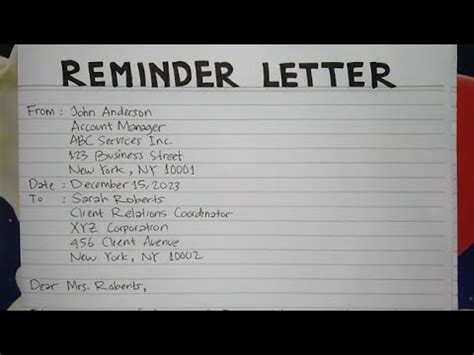 REMINDER LETTER
From : John Anderson
Account Manager
ABC Services Inc.
123 Business Street
New York, NY 10001
Date : December 15, 2023
To : Sarah Roberts
Client Relations Coordinator
XYZ Corporation
456 Client Avenue
New York, NY 10002
Dear Mrs. Roberts,